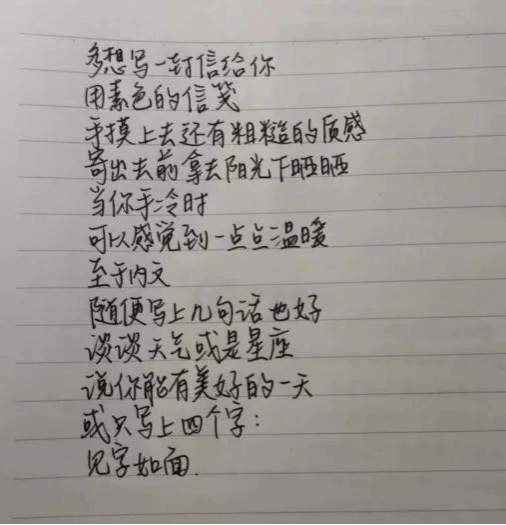 多想写一封信给你
用素色的信笺
手摸上去还有粗糙的质感
寄出去前拿去阳光下晒晒
当你手冷时
可以感觉到一点点温暖
至于内文
随便写上几句话也好
谈谈天气或是星座
说你能有美好的一天
或只写上四个字:
见字如面.